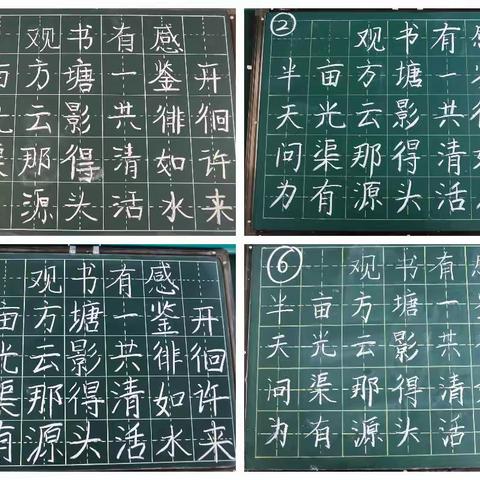 观书有感
亩方塘一鉴开
光云影共徘徊
渠那得清如许
源头活水来
② 观书有感
半亩方塘一
天光云影共
问渠那得清
为有源头活
观书有感
亩方塘一鉴开
光云影共徘徊
渠那得清如许
有源头活水来
⑥ 观书有感
半亩方塘一
天光云影共
问渠那得清
为有源头活